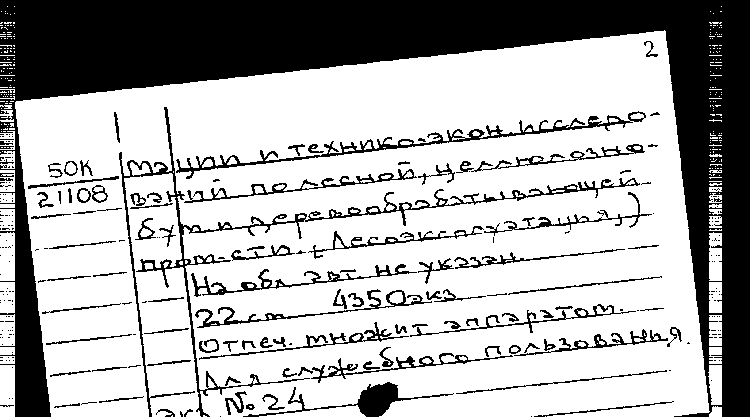 2
50К мации и технико-экон. исследо-
21108 ваний по лесной, целлюлозно-
бум и деревообрабатывающей
пром-сти. (Лесоэксплуатация,)
На обл авт. не указан.
22 см. 4350 экз
Отпеч. множит аппаратом.
Для служебного пользования.
Экз № 24